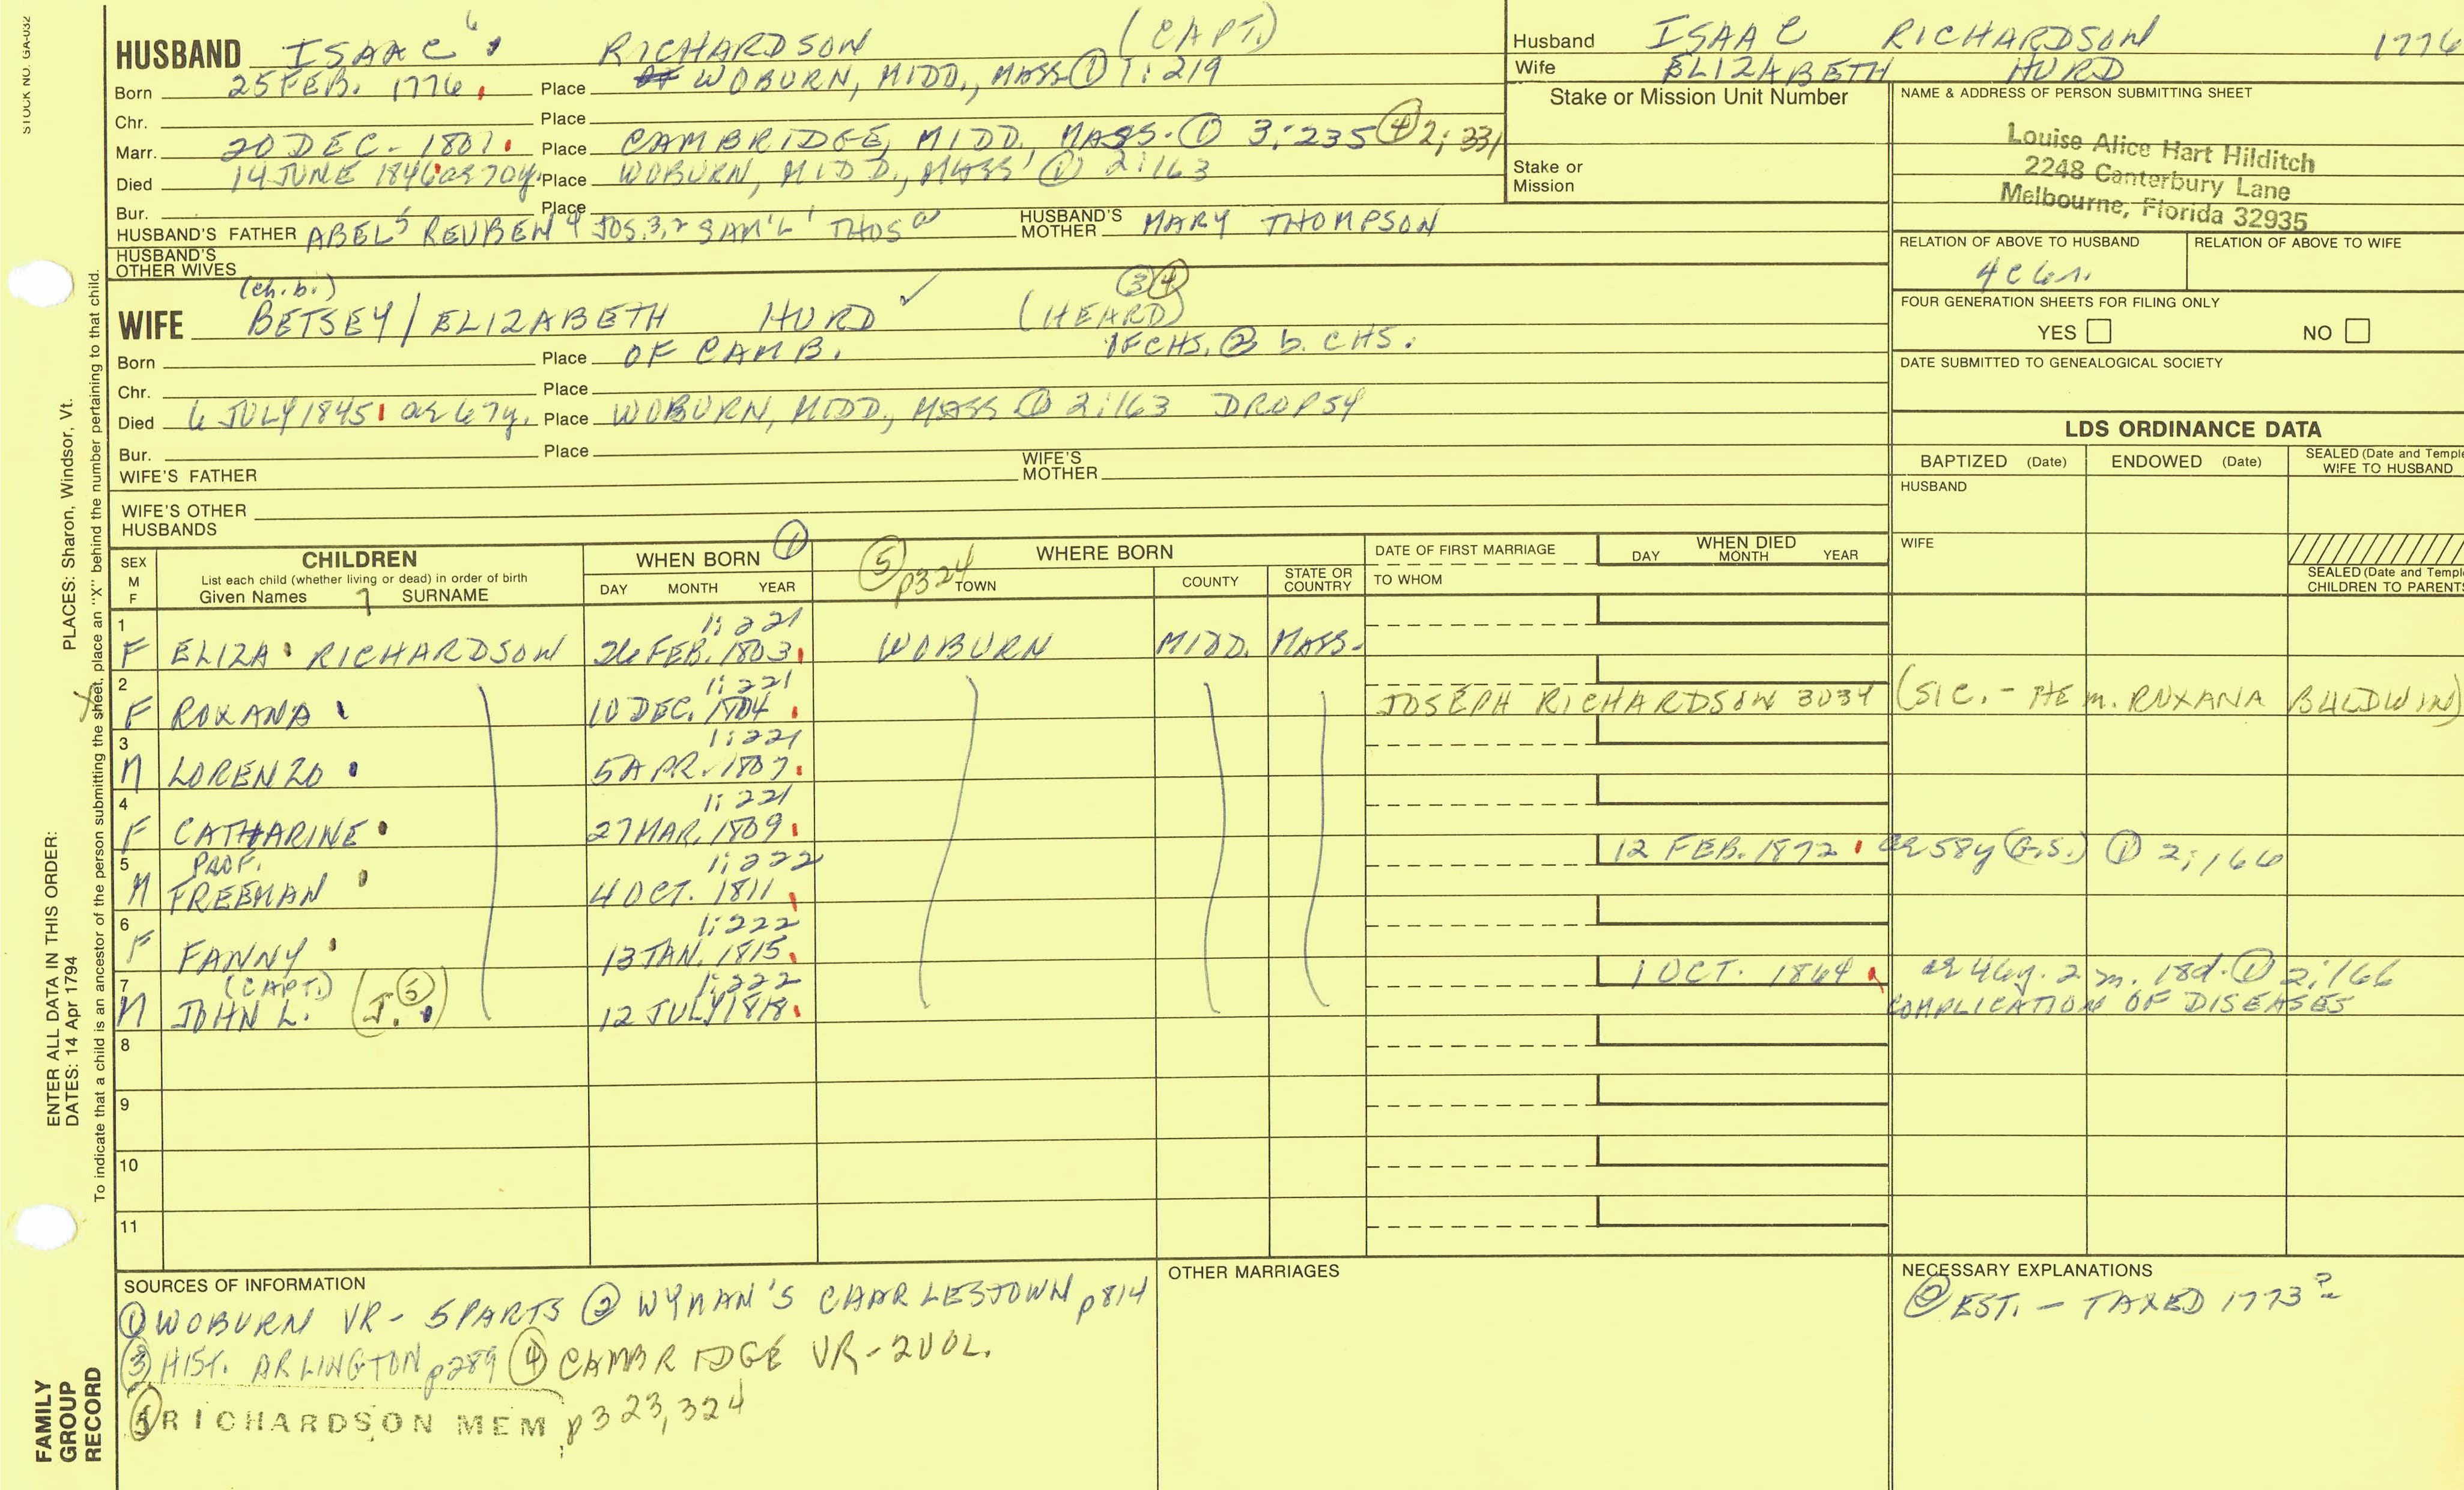 STOCK NO. GA-032
HUSBAND ISAAC 6 RICHARDSON (CAPT.)
Born 25 FEB. 1776. Place WOBURN, MIDD., MASS ① 1:219
Chr. Place
Marr. 20 DEC. 1801. Place CAMBRIDGE, MIDD. MASS. ① 3:235 ④ 2:331
Died 14 JUNE 1846 ae 70y. Place WOBURN, MIDD., MASS ① 2:163
Bur. Place
HUSBAND'S FATHER ABEL 5 REUBEN 4 JOS. 3, 2 SAM'L 1 THOS HUSBAND'S MOTHER MARY THOMPSON
HUSBAND'S OTHER WIVES
(ch. b.) ③ ④
WIFE BETSEY/ELIZABETH HURD ✓ (HEARD)
Born Place OF CAMB. OF CHS. ② b. CHS.
Chr. Place
Died 6 JULY 1845 ae 67y. Place WOBURN, MIDD., MASS ① 2:163 DROPSY
Bur. Place
WIFE'S FATHER WIFE'S MOTHER
WIFE'S OTHER HUSBANDS
Husband ISAAC RICHARDSON 1776
Wife ELIZABETH HURD
Stake or Mission Unit Number
Stake or Mission
NAME & ADDRESS OF PERSON SUBMITTING SHEET
Louise Alice Hart Hilditch
2248 Canterbury Lane
Melbourne, Florida 32935
RELATION OF ABOVE TO HUSBAND RELATION OF ABOVE TO WIFE
4C 6r.
FOUR GENERATION SHEETS FOR FILING ONLY
YES NO
DATE SUBMITTED TO GENEALOGICAL SOCIETY
LDS ORDINANCE DATA
BAPTIZED (Date) ENDOWED (Date) SEALED (Date and Temple WIFE TO HUSBAND
HUSBAND
WIFE
SEALED (Date and Templ
CHILDREN TO PARENTS
SEX M F CHILDREN WHEN BORN ① ⑤ p324 WHERE BORN DATE OF FIRST MARRIAGE WHEN DIED
List each child (whether living or dead) in order of birth
Given Names 7 SURNAME DAY MONTH YEAR TOWN COUNTY STATE OR COUNTRY TO WHOM DAY MONTH YEAR
1 1:221
F ELIZA RICHARDSON 26 FEB. 1803. WOBURN MIDD. MASS.
2 1:221
F ROXANA 10 DEC. 1804. JOSEPH RICHARDSON 3034 (SIC. - HE m. ROXANA BALDWIN)
3 1:221
M LORENZO 5 APR. 1807.
4 1:221
F CATHARINE 27 MAR. 1809.
5 PROF. 1:222 12 FEB. 1872 ae 58y (G.S.) ① 2:166
M FREEMAN 4 OCT. 1811.
6 1:222
F FANNY 13 JAN. 1815.
7 (CAPT.) 1:222 1 OCT. 1864 ae 46y. 2 m. 18d. ① 2:166
M JOHN L. (J. ⑤) 12 JULY 1818. COMPLICATION OF DISEASES
8
9
10
11
SOURCES OF INFORMATION
① WOBURN VR - 5 PARTS ② WYMAN'S CHARLESTOWN p814
③ HIST. ARLINGTON p289 ④ CAMBRIDGE VR - 2 VOL.
⑤ RICHARDSON MEM p323, 324
OTHER MARRIAGES
NECESSARY EXPLANATIONS
② EST. - TAXED 1773 ?
PLACES: Sharon, Windsor, Vt.
ENTER ALL DATA IN THIS ORDER:
DATES: 14 Apr 1794
To indicate that a child is an ancestor of the person submitting the sheet, place an "X" behind the number pertaining to that child.
X
FAMILY
GROUP
RECORD